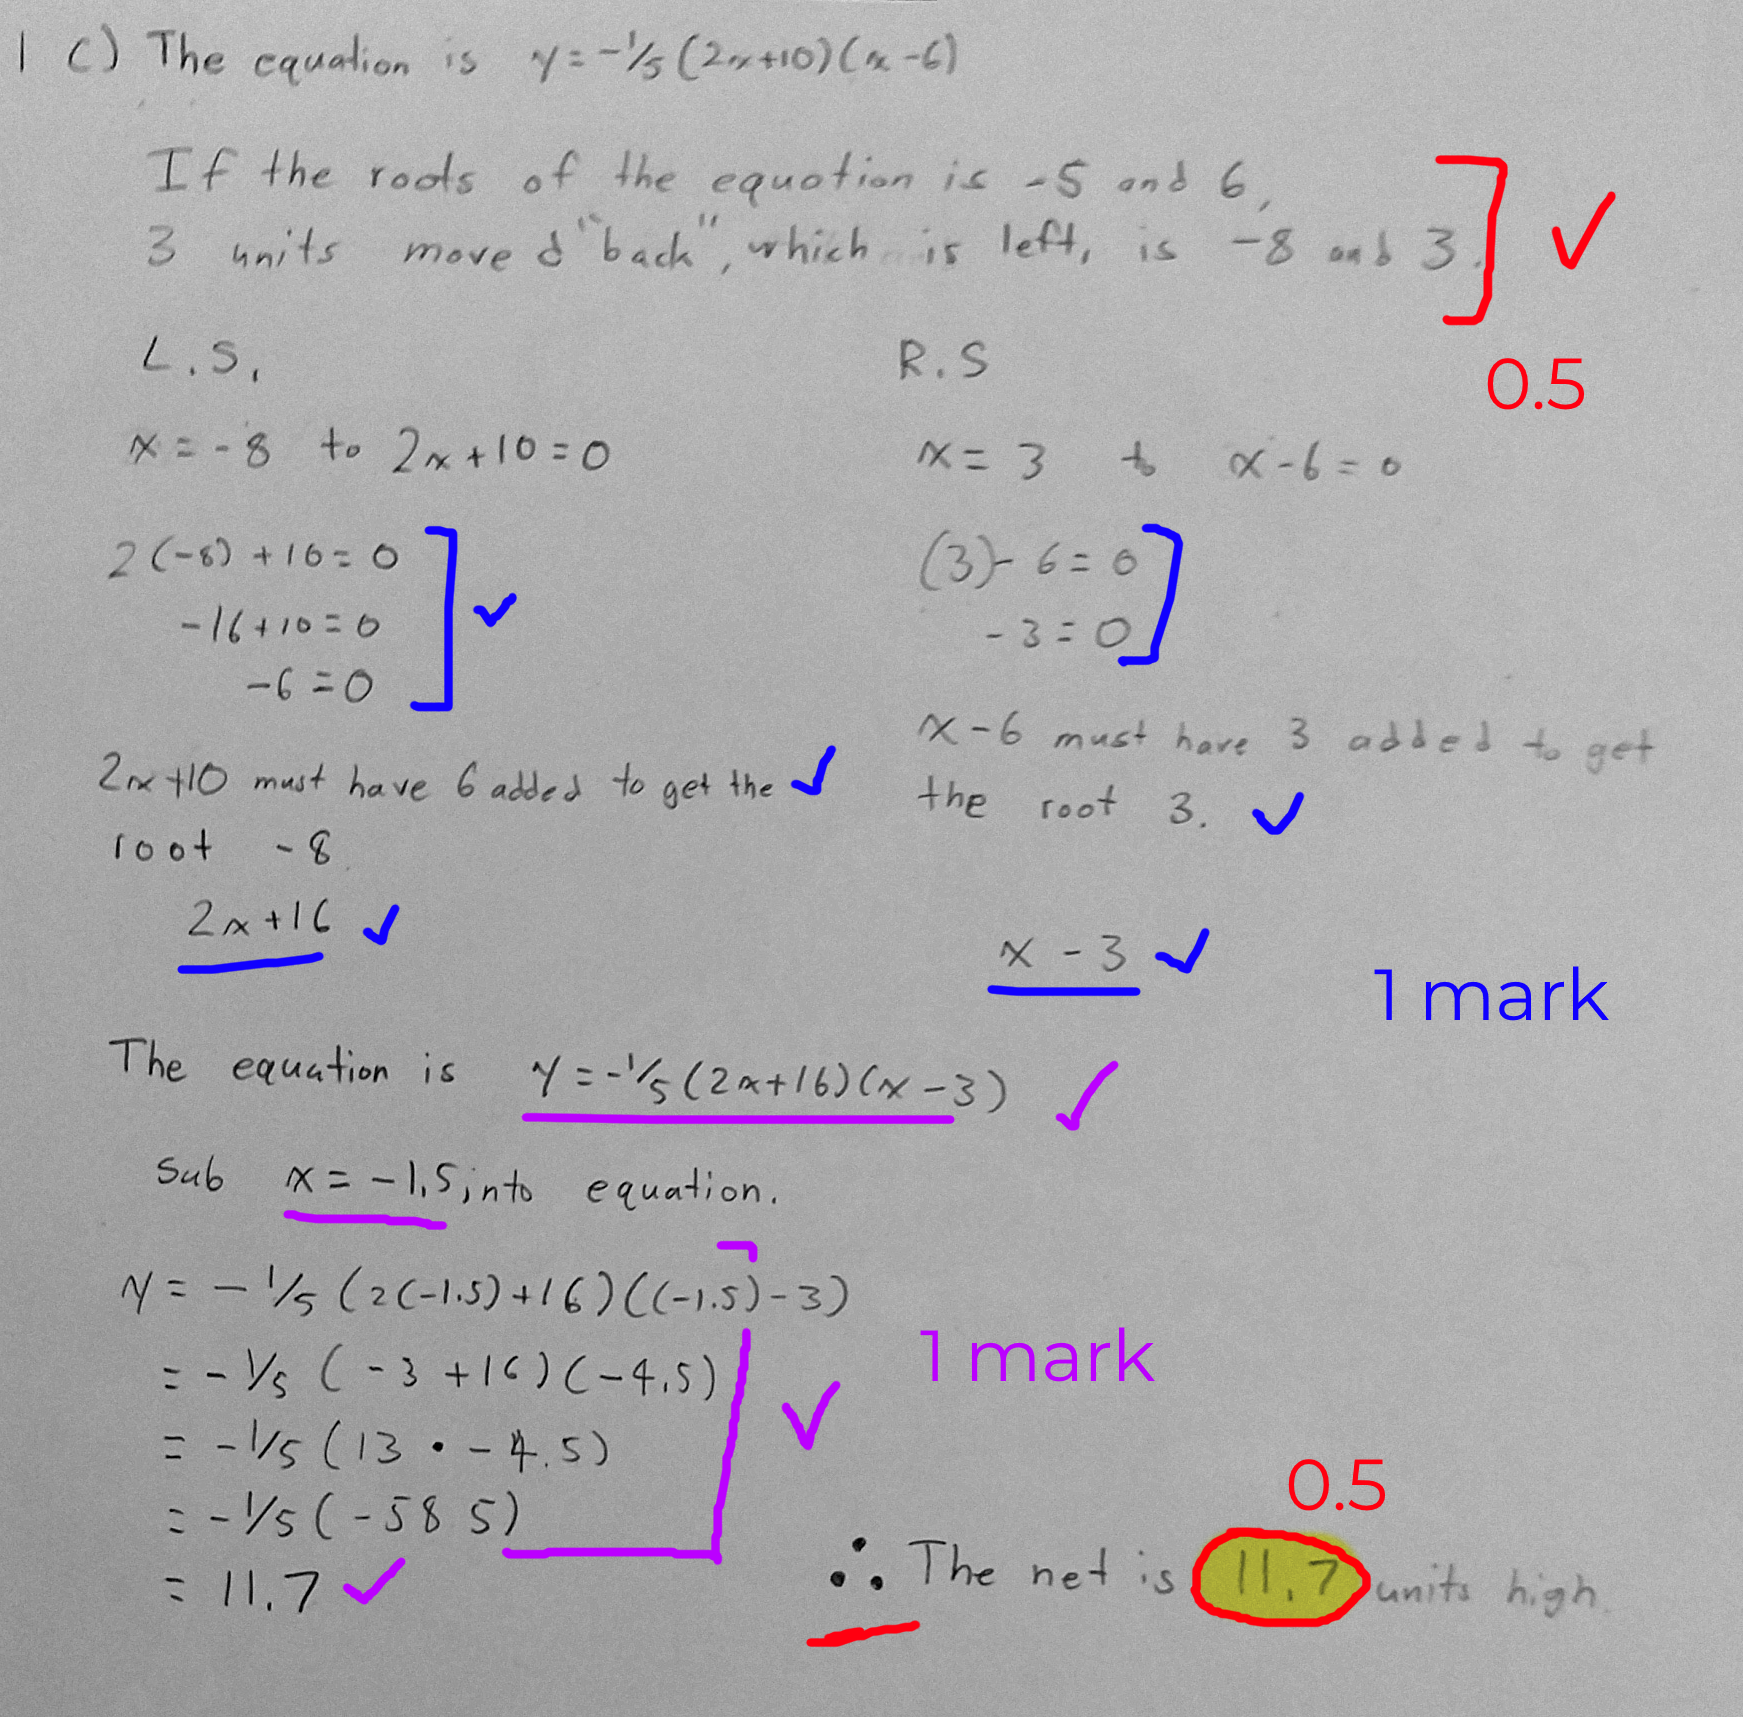 1 C) The equation is y=-1/5(2x+10)(x-6)
If the roots of the equation is -5 and 6,
3 units moved "back", which is left, is -8 and 3.
0.5
L.S.
R.S
x=-8 to 2x+10=0
x=3 to x-6=0
2(-8)+10=0
-16+10=0
-6=0
(3)-6=0
-3=0
2x+10 must have 6 added to get the
root -8
2x+16
x-6 must have 3 added to get
the root 3.
x-3
1 mark
The equation is y=-1/5(2x+16)(x-3)
Sub x=-1.5, into equation.
y=-1/5(2(-1.5)+16)((-1.5)-3)
=-1/5(-3+16)(-4.5)
=-1/5(13·-4.5)
=-1/5(-58 5)
=11.7
1 mark
0.5
∴ The net is 11.7 units high.